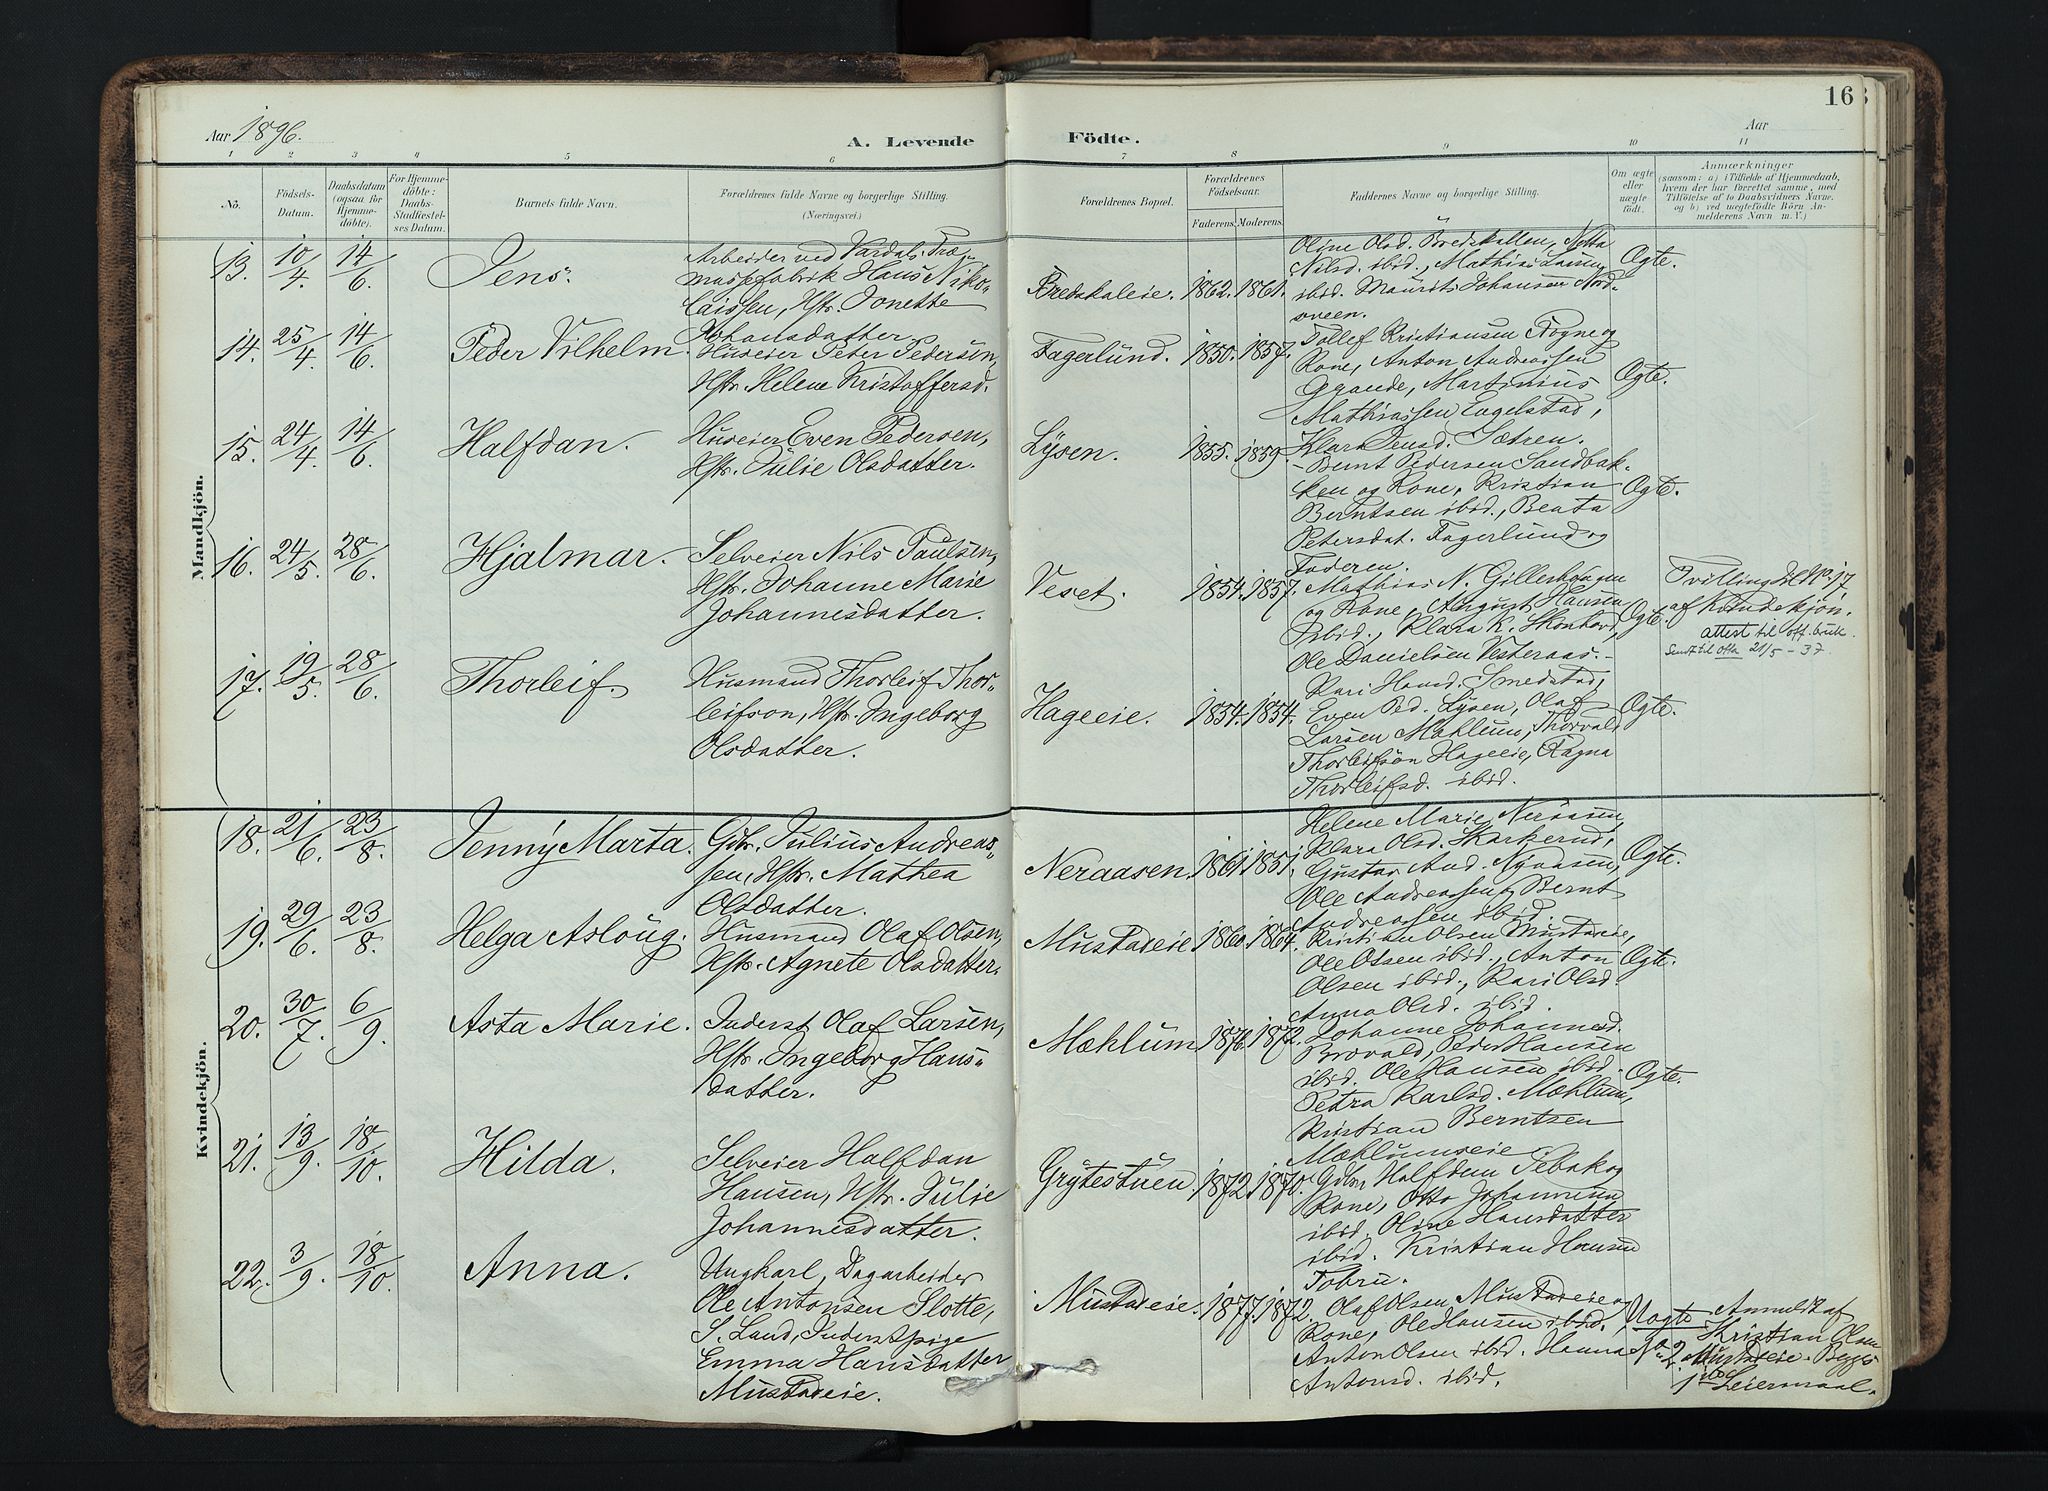 Aar 1896.
A. Levende
Födte.
Aar
163
1 2 3 4 5 6 7 8 9 10 11
Nö.
Födsels-
Datum.
Daabsdatum
(ogsaa for
Hjemme-
döbte).
For Hjemme-
döbte:
Daabs-
Stadfæstel-
ses Datum.
Barnets fulde Navn.
Forældrenes fulde Navne og borgerlige Stilling.
(Næringsvei.)
Forældrenes Bopæl.
Forældrenes
Födselsaar.
Faderens. Moderens.
Faddernes Navne og borgerlige Stilling.
Om ægte
eller
uægte
födt.
Anmærkninger
(saasom: a) i Tilfælde af Hjemmedaab,
hvem der har forrettet samme, med
Tilföielse af to Daabsvidners Navne.
og b) ved uegtefödte Börn An-
melderens Navn m. V.)
Mandkjön.
13. 10/4. 14/6. Jens.
Arbeider ved Vardals Træ-
massefabrik Hans Niko-
laissen, Hstr. Jonette
Johansdatter
Bredskaleie. 1862. 1861.
Oline Olsd. Bredskallen, Netta
Nilsd. ibid., Mathias Larsen
ibid. Maurits Johansen Nord-
sveen.
Ægte.
14. 25/4. 14/6. Peder Vilhelm.
Huseier Peter Pedersen,
Hstr. Helene Kristoffersd.
Fagerlund. 1850. 1857.
Tollef Kristiansen Fogne og
Kone, Anton Andreassen
Martinius
Mathiassen Engelstad,
Klara Jensd. Sætren.
Ægte.
15. 24/4. 14/6. Halfdan.
Huseier Even Pedersen,
Hstr. Julie Olsdatter.
Lysen. 1855. 1859.
Bernt Pedersen Sandbak-
ken og Kone, Kristian
Berntsen ibid., Beata
Petersdat. Fagerlund og
Faderen.
Ægte.
16. 24/5. 28/6. Hjalmar.
Selveier Nils Paulsen,
Hstr. Johanne Marie
Johannesdatter.
Veset. 1854. 1857.
Mathias N. Gillerhaugen
og Kone, August Hansen
ibid., Klara K. Skonhovd,
Ole Danielsen Vesteraas.
Ægte.
Tvilling til No. 17
af Kvindekjön.
attest til off. bruk.
Sendt til Otta 21/5 - 37.
17. 19/5. 28/6. Thorleif.
Husmand Thorleif Thor-
leifson, Hstr. Ingeborg
Olsdatter.
Hageeie. 1854. 1854.
Kari Hansd. Smedstad,
Even Ped. Lysen, Olaf
Larsen Mæhlum, Thorvald
Thorleifson Hageeie, Ragna
Thorleifsd. ibid.
Ægte.
Kvindekjön.
18. 21/6. 23/8. Jenny Marta.
Gdbr. Julius Andreas-
sen, Hstr. Mathea
Olsdatter.
Neraasen. 1861. 1851.
Helene Marie Neraasen,
Klara Olsd. Skarkerud,
Gustav And. Nyaasen,
Ole Andreassen, Bernt
Andreassen ibid.
Ægte.
19. 29/6. 23/8. Helga Asloug.
Husmand Olaf Olsen,
Hstr. Agnete Olsdatter.
Mustadeie 1860. 1864.
Kristian Olsen Mustadeie,
Ole Olsen ibid., Anton
Olsen ibid., Kari Olsd
Anna Olsd. ibid.
Ægte.
20. 30/7. 6/9. Asta Marie.
Inderst Olaf Larsen,
Hstr. Ingeborg Hans-
datter.
Mæhlum 1870. 1872.
Johanne Johannesd.
Brovald, Peder Hansen
ibid. Ole Hansen ibid.
Petra Karlsd. Mæhlum,
Kristian Berntsen
Mæhlumseie
Ægte.
21. 13/9. 18/10. Hilda.
Selveier Halfdan
Hansen, Hstr. Julie
Johannesdatter.
Grytestuen. 1872. 1870.
Gdbr. Halfdan
Kone, Otto
ibid. Oline Hansdatter
ibid. Kristian Hansen
Tobru.
22. 3/9. 18/10. Anna.
Ungkarl, Dagarbeider
Ole Antonsen Slotte,
S. Land, Inderstpige
Emma Hansdatter
Mustadeie.
Mustadeie. 1877. 1872.
Olaf Olsen Mustadeie og
Kone, Ole Hansen ibid.,
Anton Olsen ibid. Hanna
Antonsd. ibid.
Uægte
No. 2
Anmeldt af
Kristian Olsen
Mustadeie. Begges
1ste Leiermaal.